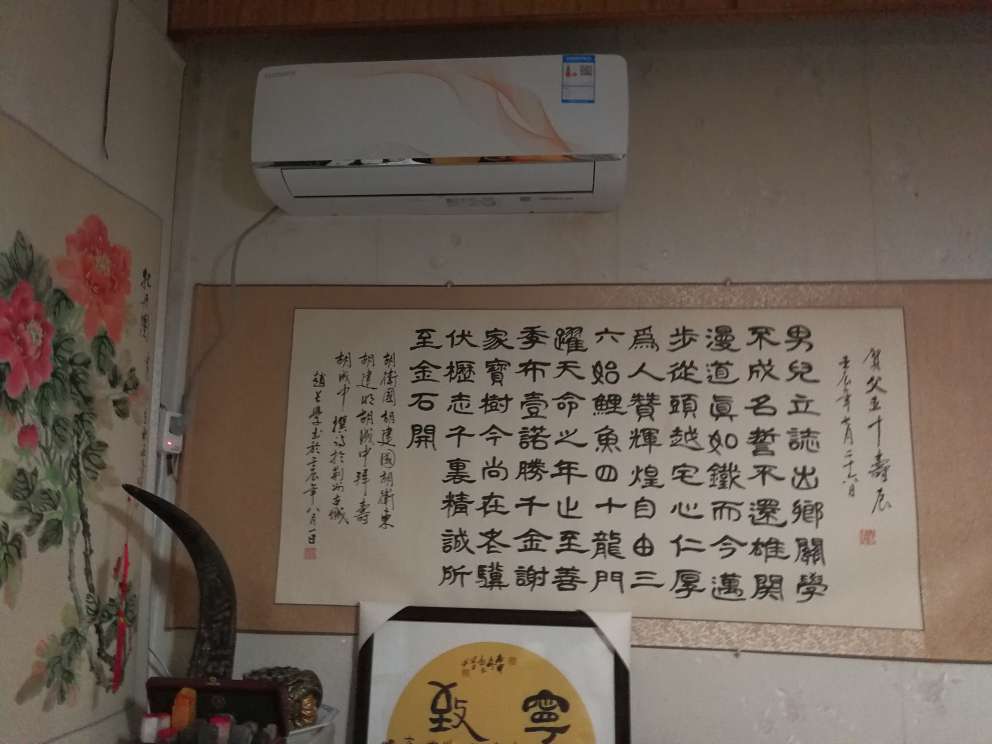 賀父五十壽辰
壬辰年七月二十六日
男兒立誌出鄉關學
不成名誓不還雄関
漫道真如鐵而今邁
步從頭越宅心仁厚
爲人贊輝煌自由三
六始鯉魚四十龍門
躍天命之年止至善
季布壹諾勝千金謝
家寶樹今尚在老驥
伏櫪志千裏精誠所
至金石開
胡衛國胡建國胡衛東
胡建明胡誠中拜壽
胡成中撰詩於荊州古城
學書於壬辰年八月一日
牡丹圖
寧
致